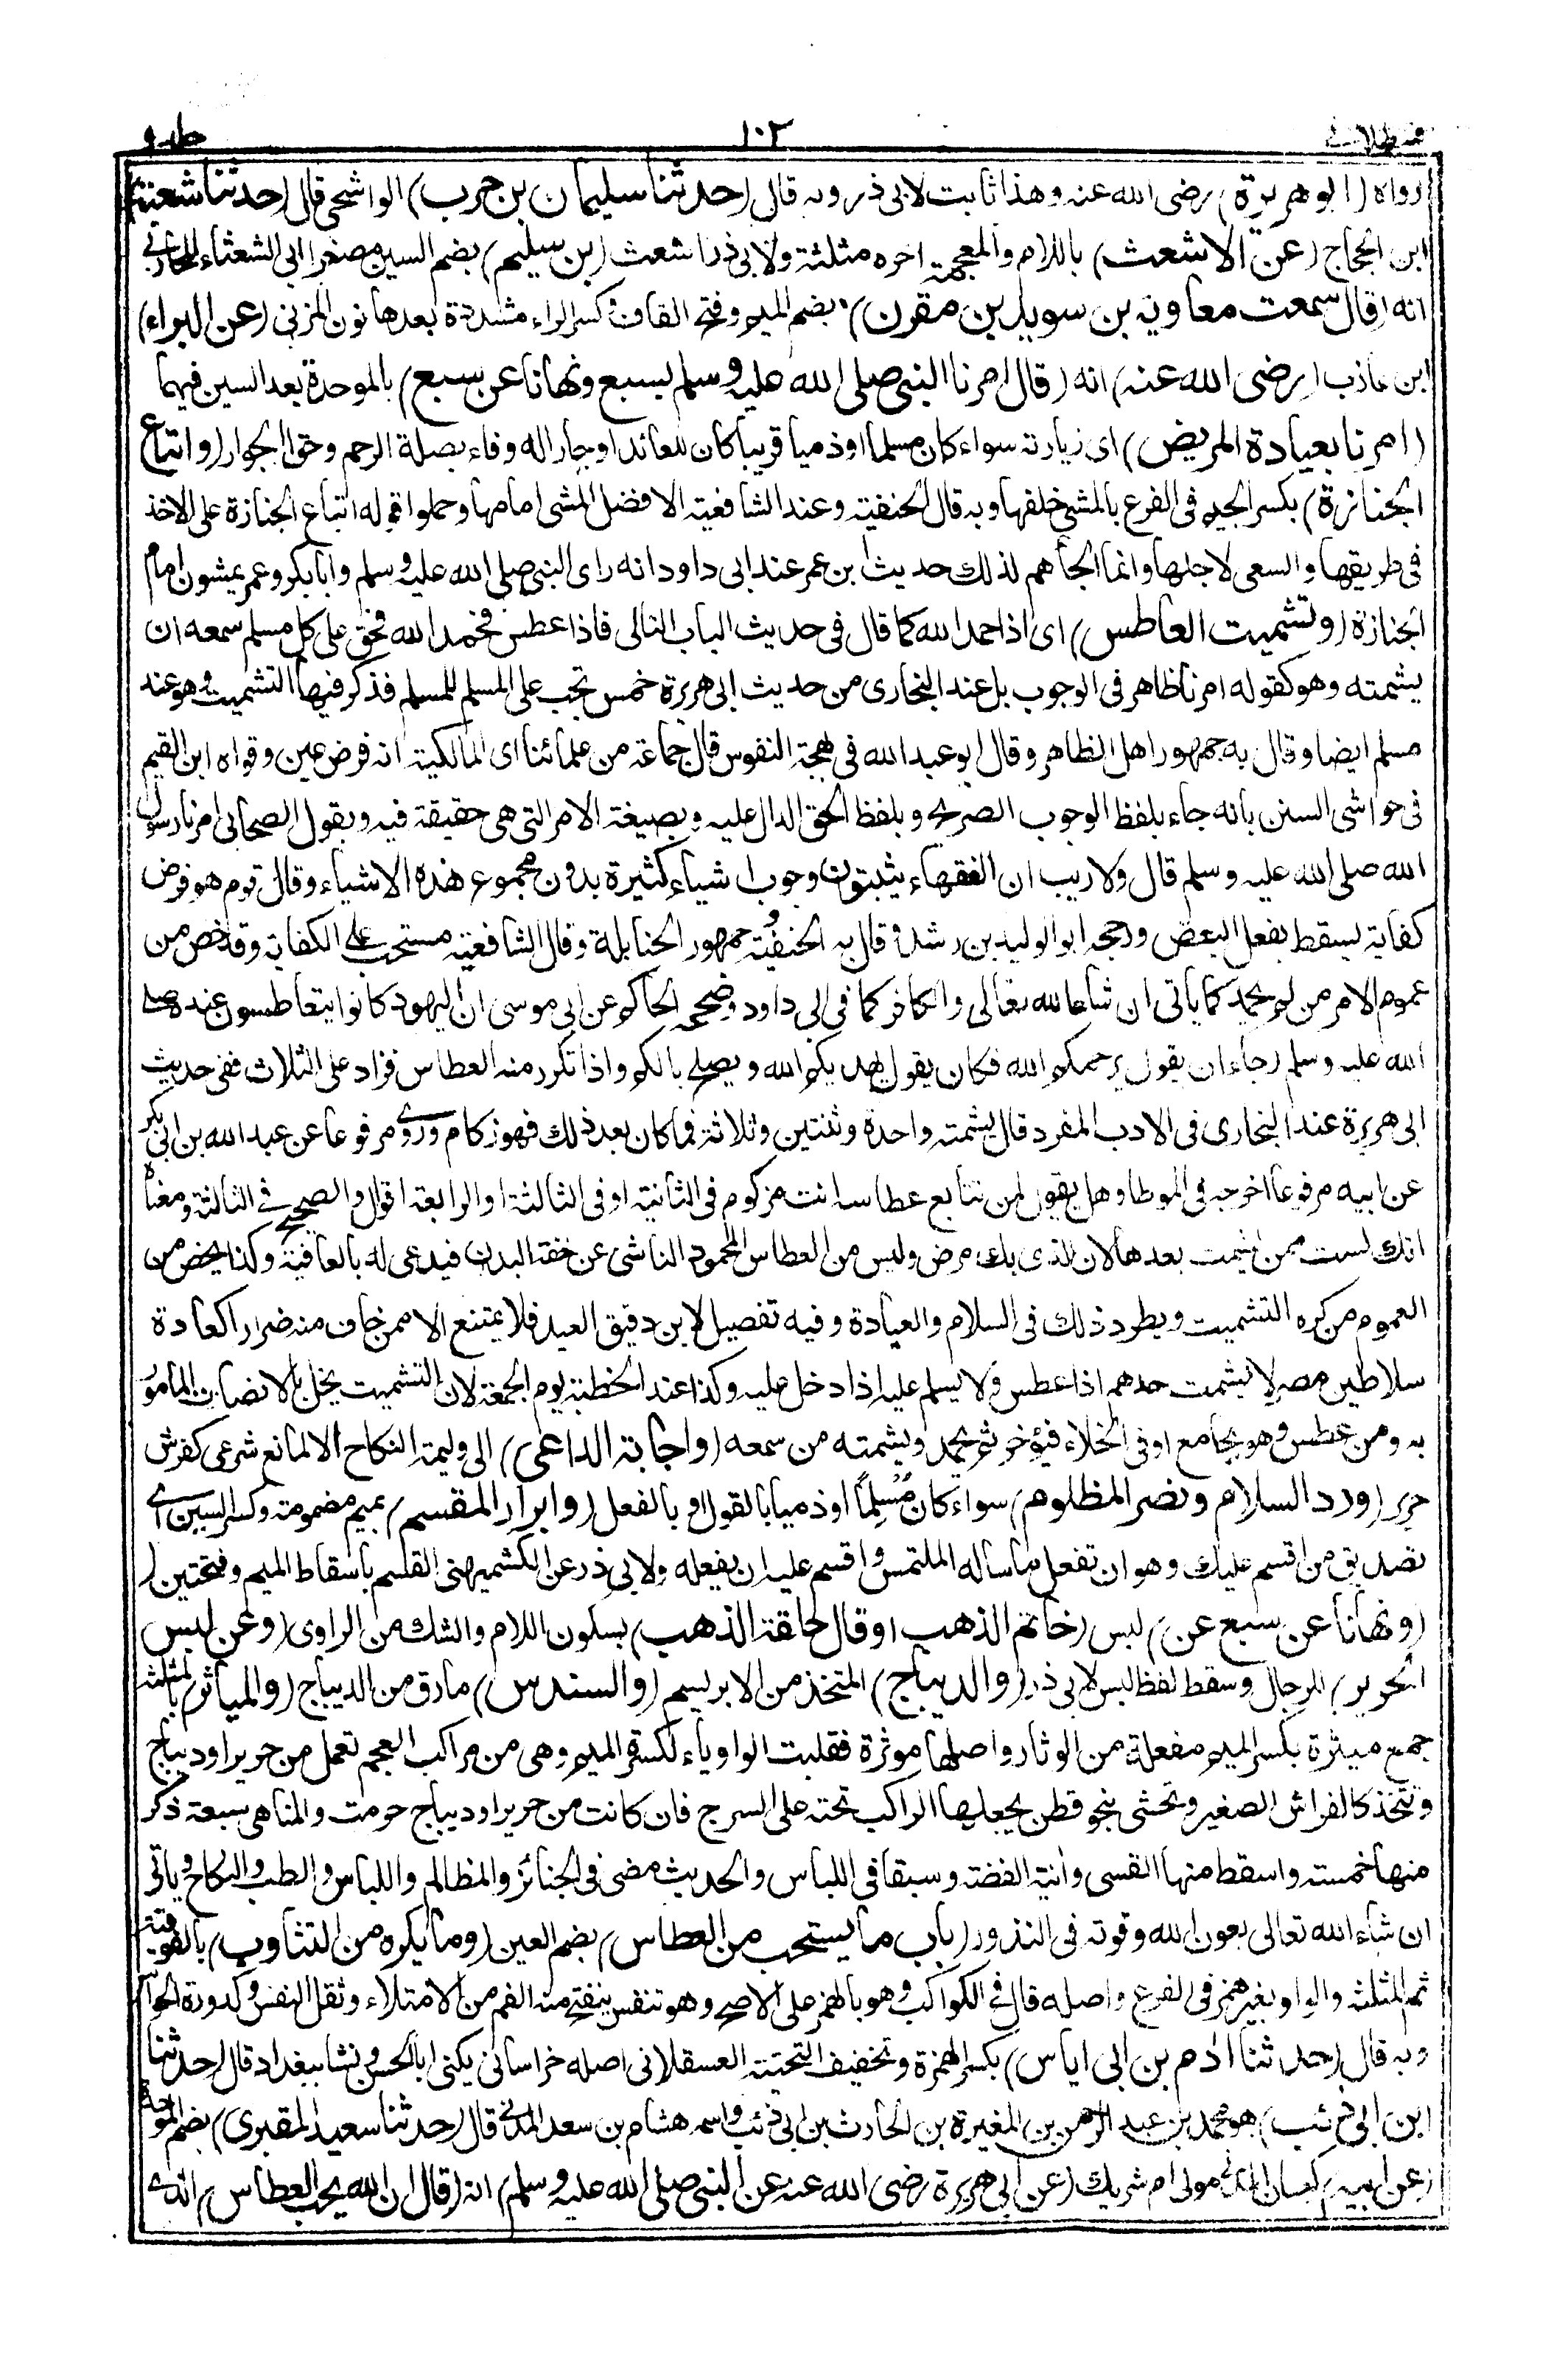 قسطلانی ١٠٢ جلد ٩
رواه (ابو هريرة) رضى الله عنه وهذا ثابت لابى ذر وبه قال (حدثنا سليمان بن حرب) الواشحى قال (حدثنا شعبة)
ابن الحجاج (عن الاشعث) باللام والمعجمة اخره مثلثة ولابى ذر اشعث (بن سليم) بضم السين مصغرا ابى الشعثاء المحاربى
انه (قال سمعت معاوية بن سويد بن مقرن) بضم الميم وفتح القاف وكسر الراء مشددة بعدها نون المزنى (عن البراء)
ابن عاذب (رضى الله عنه) انه (قال امرنا النبى صلى الله عليه وسلم بسبع ونهانا عن سبع) بالموحدة بعد السين فيهما
(امرنا بعيادة المريض) اى زيارته سواء كان مسلما او ذميا قريبا كان للعائد او جارا له وفاء بصلة الرحم وحق الجوار (واتباع
الجنازة) بكسر الجيم فى الفرع بالمشى خلفها وبه قال الحنفية وعند الشافعية الافضل المشى امامها وحملوا قوله اتباع الجنازة على الاخذ
فى طريقها والسعى لاجلها وانما الجأهم لذلك حديث ابن عمر عند ابى داود انه راى النبى صلى الله عليه وسلم وابا بكر وعمر يمشون امام
الجنازة (وتشميت العاطس) اى اذا حمد الله كما قال فى حديث الباب التالى فاذا عطس فحمد الله فحق على كل مسلم سمعه ان
يشمته وهو كقوله امرنا ظاهر فى الوجوب بل عند البخارى من حديث ابى هريرة خمس تجب على المسلم للمسلم فذكر فيها التشميت وهو عند
مسلم ايضا وقال به جمهور اهل الظاهر وقال ابو عبد الله فى بهجة النفوس قال جماعة من علمائنا اى المالكية انه فرض عين وقواه ابن القيم
فى حواشى السنن بانه جاء بلفظ الوجوب الصريح وبلفظ الحق الدال عليه وبصيغة الامر التى هى حقيقة فيه وبقول الصحابى امرنا رسول
الله صلى الله عليه وسلم قال ولا ريب ان الفقهاء يثبتون وجوب اشياء كثيرة بدون مجموع هذه الاشياء وقال قوم هو فرض
كفاية يسقط بفعل البعض ورجحه ابو الوليد بن رشد وقال به الحنفية وجمهور الحنابلة وقال الشافعية مستحب على الكفاية وقد خص من
عموم الامر من لم يحمد كما ياتى ان شاء الله تعالى والكافر كما فى ابى داود وصححه الحاكم عن ابى موسى ان اليهود كانوا يتعاطسون عنده صلى
الله عليه وسلم رجاء ان يقول يرحمكم الله فكان يقول يهديكم الله ويصلح بالكم واذا تكرر منه العطاس فزاد على الثلاث ففى حديث
ابى هريرة عند البخارى فى الادب المفرد قال يشمته واحدة وثنتين وثلاثة فما كان بعد ذلك فهو زكام وروى مرفوعا عن عبد الله بن ابى بكر
عن ابيه مرفوعا اخرجه فى الموطا وهل يقول لمن تتابع عطاسه انت مزكوم فى الثانية او فى الثالثة او الرابعة اقوال والصحيح فى الثالثة ومعناه
انك لست ممن يشمت بعدها لان الذى بك مرض وليس من العطاس المحمود الناشى عن خفة البدن فيدعى له بالعافية وكذا يخص من
العموم من كره التشميت ويطرد ذلك فى السلام والعيادة وفيه تفصيل لابن دقيق العيد فلا يمتنع الا ممن خاف منه ضررا كعادة
سلاطين مصر لا يشمت احدهم اذا عطس ولا يسلم عليه اذا دخل عليه وكذا عند الخطبة يوم الجمعة لان التشميت يخل بالانصات المامور
به ومن عطس وهو يجامع او فى الخلاء فيؤخر ثم يحمد ويشمته من سمعه (واجابة الداعى) الى وليمة النكاح الا لمانع شرعى كفرش
حرير (ورد السلام ونصر المظلوم) سواء كان مُسْلِمًا او ذميا بالقول او بالفعل (وابرار المقسم) بميم مضمومة وكسر السين اى
تصديق من اقسم عليك وهو ان تفعل ما سأله الملتمس واقسم عليه ان يفعله ولابى ذر عن الكشميهنى القسم باسقاط الميم وفتحتين (
(ونهانا عن سبع عن) لبس (خاتم الذهب او قال حلقة الذهب) بسكون اللام والشك من الراوى (وعن لبس
الحرير) للرجال وسقط لفظ لبس لابى ذر (والديباج) المتخذ من الابريسم (والسندس) مارق من الديباج (والمياثر) بالمثلثة
جمع ميثرة بكسر الميم مفعلة من الوثار واصلها موثرة فقلبت الواو ياء لكسرة الميم وهى من مراكب العجم تعمل من حرير او ديباج
وتتخذ كالفراش الصغير وتحشى بنحو قطن يجعلها الراكب تحته على السرج فان كانت من حرير او ديباج حرمت والمناهى سبعة ذكر
منها خمسة واسقط منها القسى وانية الفضة وسبقا فى اللباس والحديث مضى فى الجنائز والمظالم واللباس والطب والنكاح وياتى
ان شاء الله تعالى بعون الله وقوته فى النذور (باب ما يستحب من العطاس) بضم العين (وما يكره من التثاوب) بالفوقية
ثم المثلثة والواو بغير همز فى الفرع واصله قال فى الكواكب وهو بالهمز على الاصح وهو تنفس ينفتح منه الفم من الامتلاء وثقل النفس وكدورة الحواس
وبه قال (حدثنا ادم بن ابى اياس) بكسر الهمزة وتخفيف التحتية العسقلانى اصله خراسانى يكنى ابا الحسن ونشا ببغداد قال (حدثنا
ابن ابى ذئب) هو محمد بن عبد الرحمن بن المغيرة بن الحارث بن ابى ذئب واسمه هشام بن سعد المدنى قال (حدثنا سعيد المقبرى) بضم الموحدة
(عن ابيه) كيسان المدنى مولى ام شريك (عن ابى هريرة رضى الله عنه عن النبى صلى الله عليه وسلم) انه (قال ان الله يحب العطاس) الذى